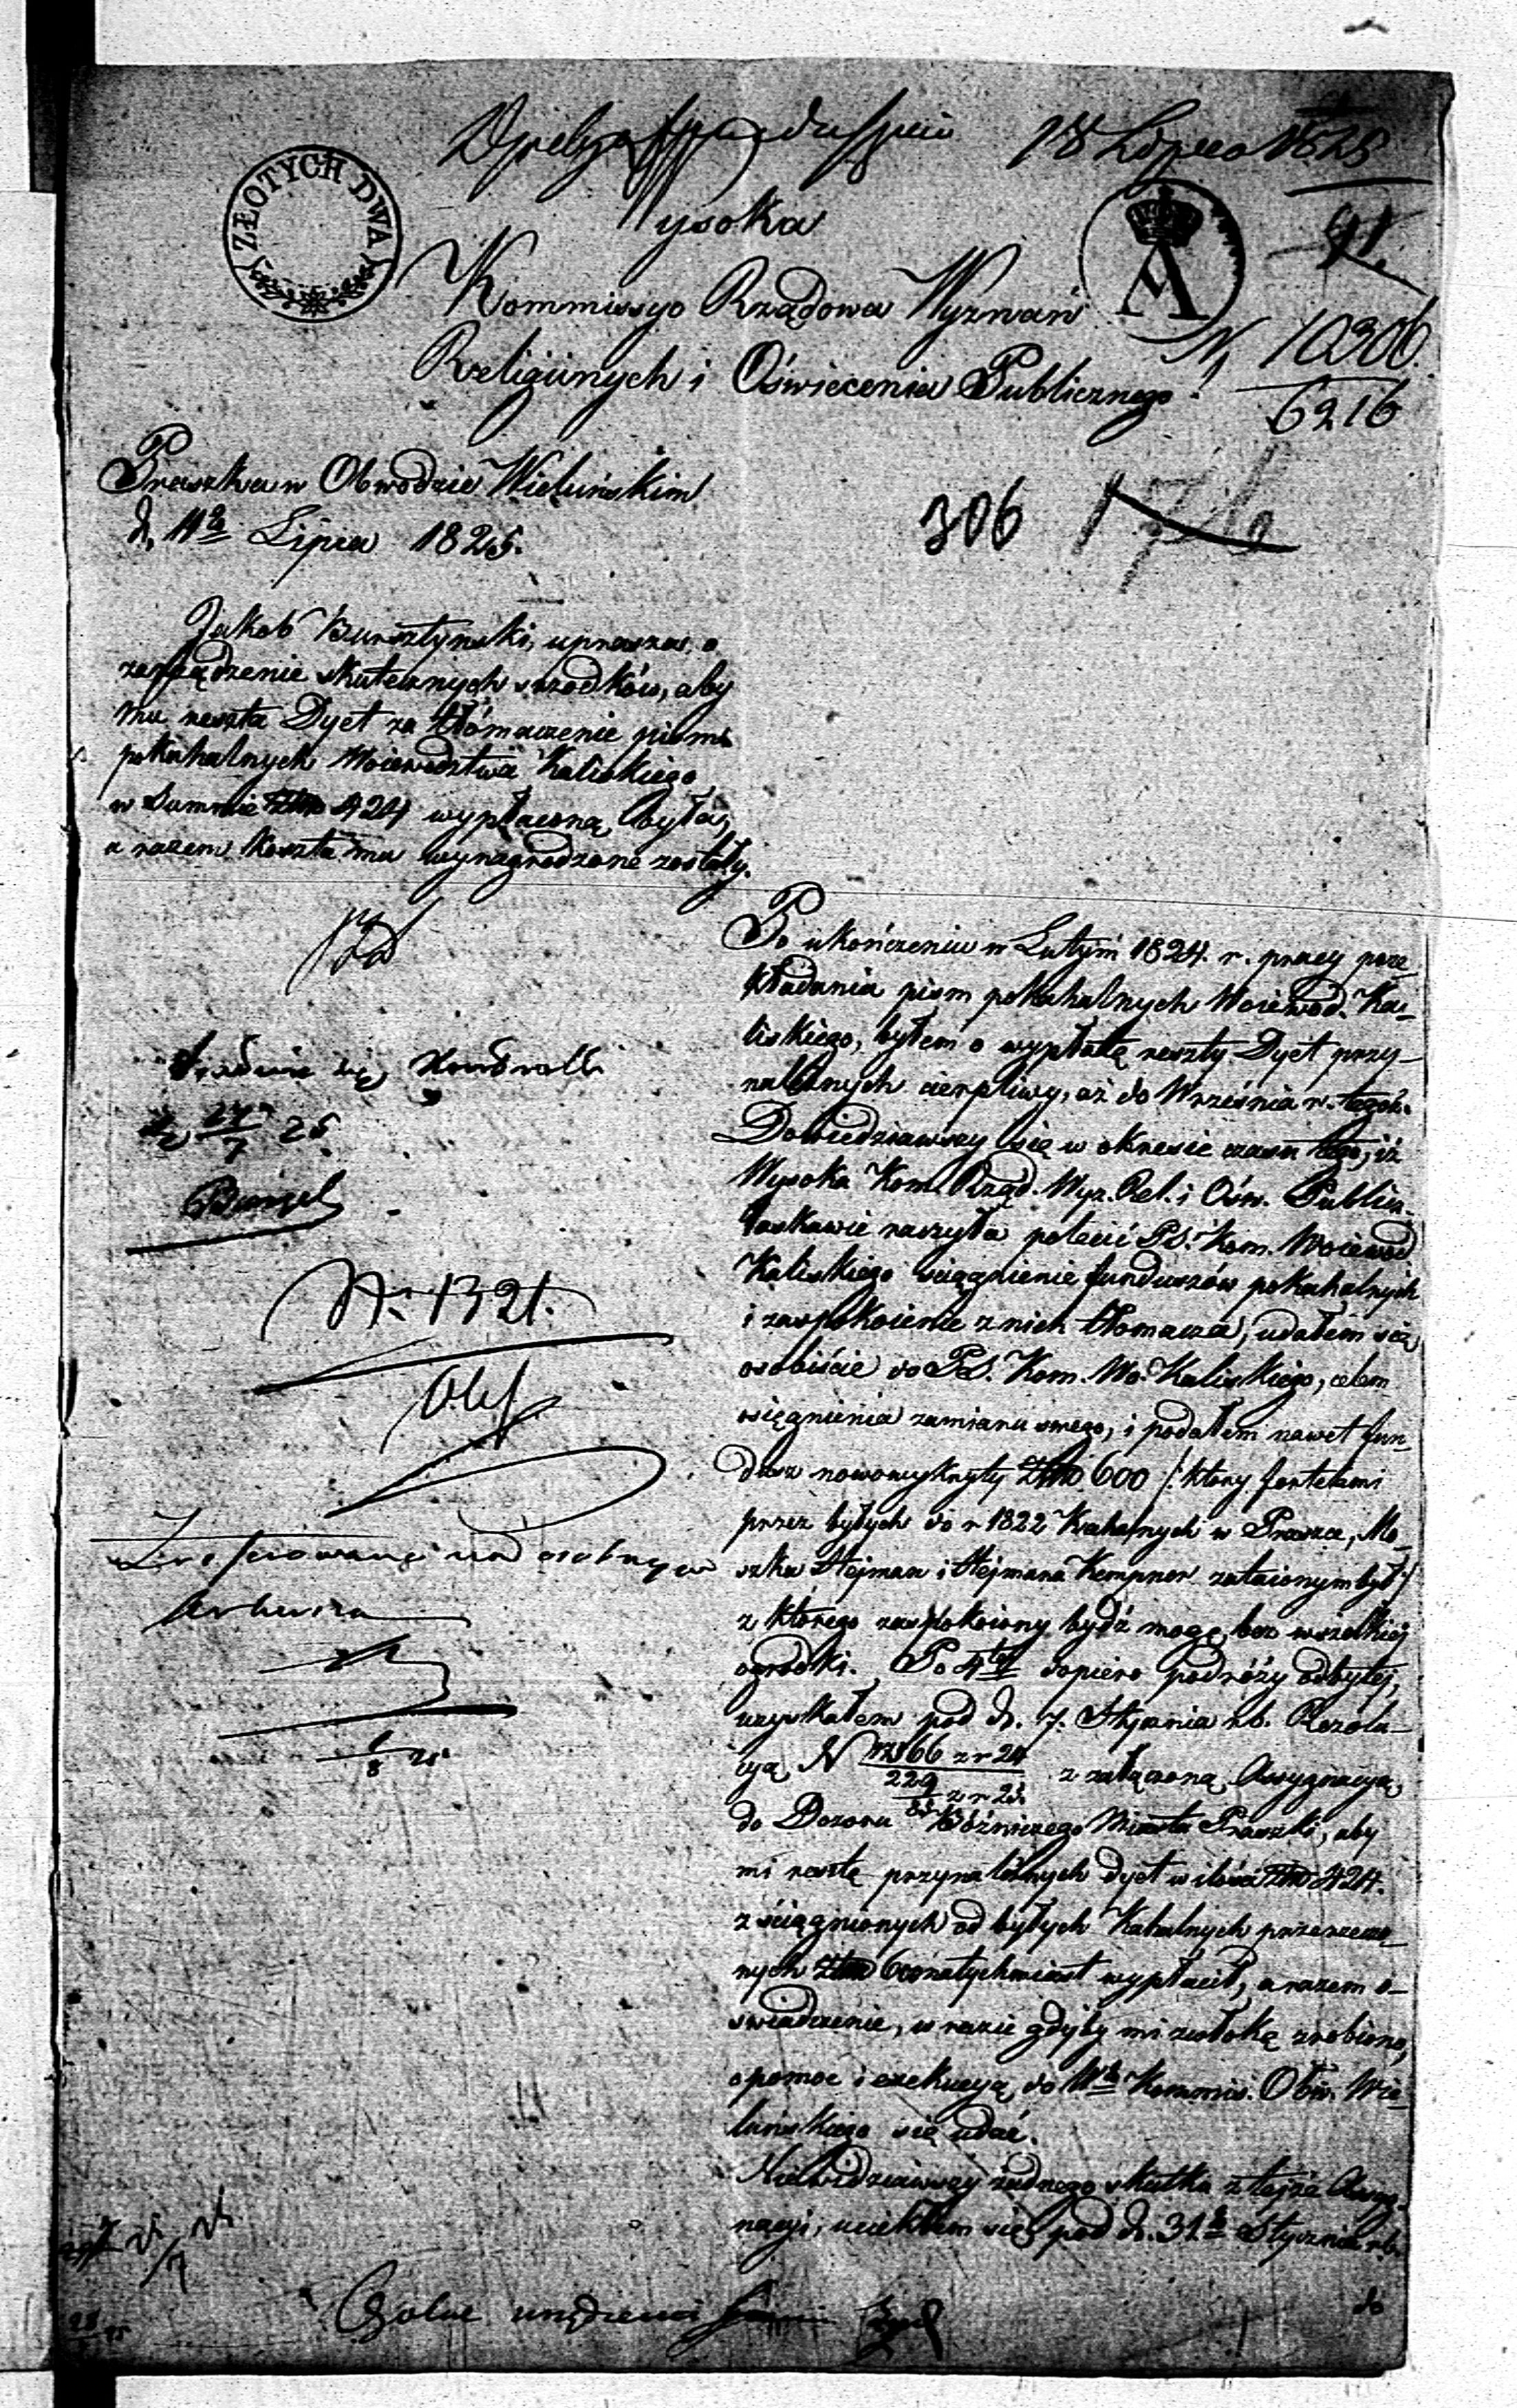 18 Lipca 1825
ZŁOTYCH DWA
Wysoka
A
Kommissyo Rządowa Wyznań
N 10306
Religiinych i Oświecenia Publicznego!
6216
Praszka w Obwodzie Wieluńskim
d. 11go Lipca 1825.
306 176
Jakob Bursztynski, uprasza, o
zarządzenie skutecznych srzodków, aby
mu reszta Dyet za tłómaczenie pism
pokahalnych Woiewodztwa Kaliskiego
w Summie Złtp 424 wypłaconą była,
a razem koszta mu wynagrodzone zostały.
Po ukończeniu w Lutym 1824. r. pracy prze-
kładania pism pokahalnych Woiewod. Ka-
liskiego, byłem o wypłatę reszty Dyet przy-
należnych cierpliwy, aż do Września r. tegoż.
Dowiedziawszy się w okresie czasu tego, iż
Wysoka Kom. Rząd. Wyz. Rel. i Ośw. Public.
łaskawie raczyła polecić Pś. Kom. Woiewod.
Kaliskiego ściągnienie funduszów pokahalnych
i zaspokoienie z nich tłomacza, udałem się
osobiście do Pś. Kom. Wo. Kaliskiego, celem
osięgnienia zamiaru swego, i podałem nawet fun-
dusz nowowykryty Złtp. 600 /: ktory fortelami
przez byłych do r 1822 Kahalnych w Praszce, Mo-
szka Hejman i Hejmana Kempner zataionym był :/
z którego zaspokoiony bydź mogę bez wszelkiej
ogrodki. Po 4tej dopiero podróży odbytej,
uzyskałem pod d. 7. Stycznia r.b. Rezolu-
cyą N z r 24 / 229 z r 25 z załączoną Assygnacyą,
do Dozoru Bóżniczego Miasta Praszki, aby
mi resztę przynależnych dyet w ilości Złtp 424.
z ściągnionych od byłych Kahalnych przerzeczo-
nych Złtp 600 natychmiast wypłacił, a razem o-
swiadczenie, w razie gdyby mi zwłokę zrobiono,
o pomoc i exekucyą do Wo Kommis. Obw. Wie-
luńskiego się udać.
Niewidziawszy żadnego skutku z tejże Assyg-
nacyi, uciekłem się pod d. 31go Stycznia r.b.
do
Kontrolli
27/7 25
N. 1321.